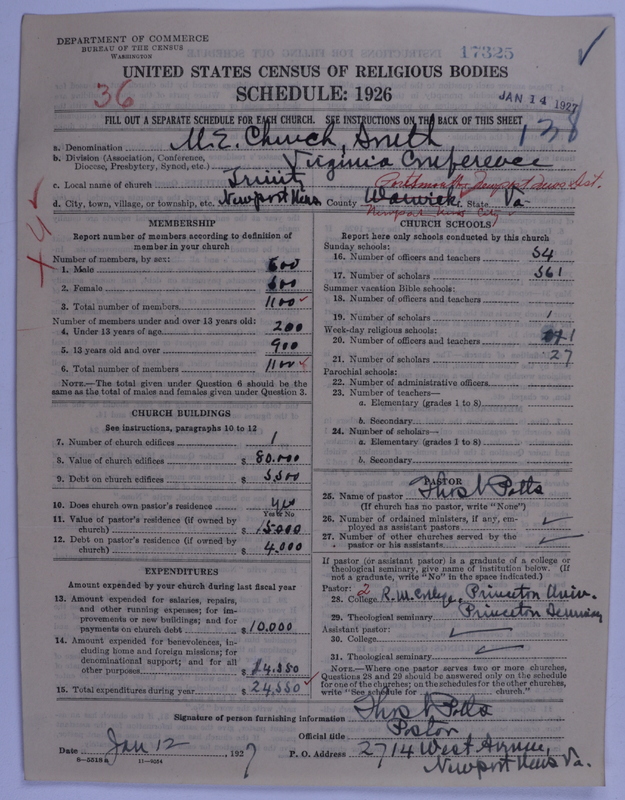 DEPARTMENT OF COMMERCE
BUREAU OF THE CENSUS
WASHINGTON
17325
UNITED STATES CENSUS OF RELIGIOUS BODIES
36
SCHEDULE: 1926
JAN 14 1927
FILL OUT A SEPARATE SCHEDULE FOR EACH CHURCH. SEE INSTRUCTIONS ON THE BACK OF THIS SHEET
138
a. Denomination M.E. Church, South
b. Division (Association, Conference, Diocese, Presbytery, Synod, etc.) Virginia Conference
c. Local name of church Trinity
Portsmouth-Newport News Dist.
d. City, town, village, or township, etc. Newport News County Warwick State Va
Newport News City
MEMBERSHIP
Report number of members according to definition of member in your church
Number of members, by sex:
1. Male 500
2. Female 600
3. Total number of members 1100
Number of members under and over 13 years old:
4. Under 13 years of age 200
5. 13 years old and over 900
6. Total number of members 1100
NOTE.—The total given under Question 6 should be the same as the total of males and females given under Question 3.
CHURCH BUILDINGS
See instructions, paragraphs 10 to 12
7. Number of church edifices 1
8. Value of church edifices $ 80.000
9. Debt on church edifices $ 5,500
10. Does church own pastor's residence yes
Yes or No
11. Value of pastor's residence (if owned by church) $ 15.000
12. Debt on pastor's residence (if owned by church) $ 4.000
EXPENDITURES
Amount expended by your church during last fiscal year
13. Amount expended for salaries, repairs, and other running expenses; for improvements or new buildings; and for payments on church debt $ 10.000
14. Amount expended for benevolences, including home and foreign missions; for denominational support; and for all other purposes $ 14.550
15. Total expenditures during year $ 24,550
CHURCH SCHOOLS
Report here only schools conducted by this church
Sunday schools:
16. Number of officers and teachers 54
17. Number of scholars 561
Summer vacation Bible schools:
18. Number of officers and teachers
19. Number of scholars
Week-day religious schools:
20. Number of officers and teachers 1
21. Number of scholars 27
Parochial schools:
22. Number of administrative officers
23. Number of teachers—
a. Elementary (grades 1 to 8)
b. Secondary
24. Number of scholars—
a. Elementary (grades 1 to 8)
b. Secondary
PASTOR
25. Name of pastor Thos N Potts
(If church has no pastor, write "None")
26. Number of ordained ministers, if any, employed as assistant pastors
27. Number of other churches served by the pastor or his assistants
If pastor (or assistant pastor) is a graduate of a college or theological seminary, give name of institution below. (If not a graduate, write "No" in the space indicated.)
Pastor: 2
28. College R.M. College, Princeton Univ.
29. Theological seminary Princeton Seminary
Assistant pastor:
30. College
31. Theological seminary
NOTE.—Where one pastor serves two or more churches, Questions 28 and 29 should be answered only on the schedule for one of the churches; on the schedules for the other churches, write "See schedule for church."
Signature of person furnishing information Thos N Potts
Official title Pastor
Date Jan 12 1927
P. O. Address 2714 West Avenue,
Newport News Va.
8-5518a 11-9254